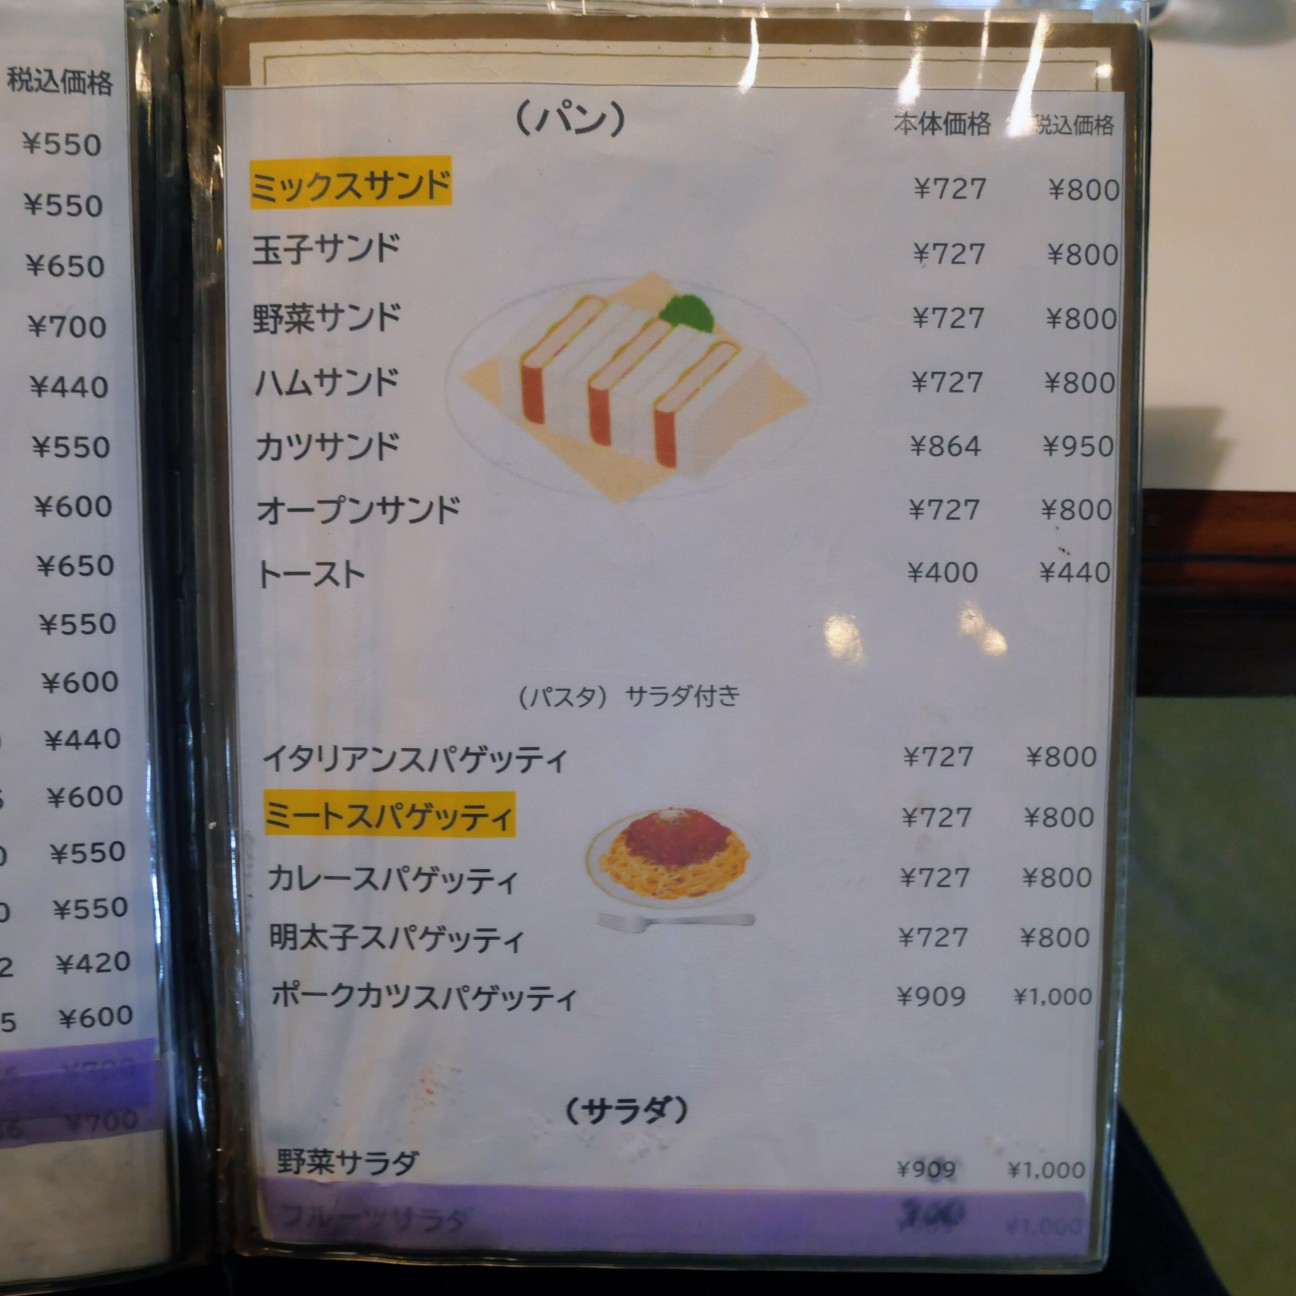 税込価格
¥550
¥550
¥650
¥700
¥440
¥550
¥600
¥650
¥550
¥600
¥440
¥600
¥550
¥550
¥420
¥600
¥700
(パン) 本体価格 税込価格
ミックスサンド ¥727 ¥800
玉子サンド ¥727 ¥800
野菜サンド ¥727 ¥800
ハムサンド ¥727 ¥800
カツサンド ¥864 ¥950
オープンサンド ¥727 ¥800
トースト ¥400 ¥440
(パスタ) サラダ付き
イタリアンスパゲッティ ¥727 ¥800
ミートスパゲッティ ¥727 ¥800
カレースパゲッティ ¥727 ¥800
明太子スパゲッティ ¥727 ¥800
ポークカツスパゲッティ ¥909 ¥1,000
(サラダ)
野菜サラダ ¥909 ¥1,000
フルーツサラダ ¥1,000